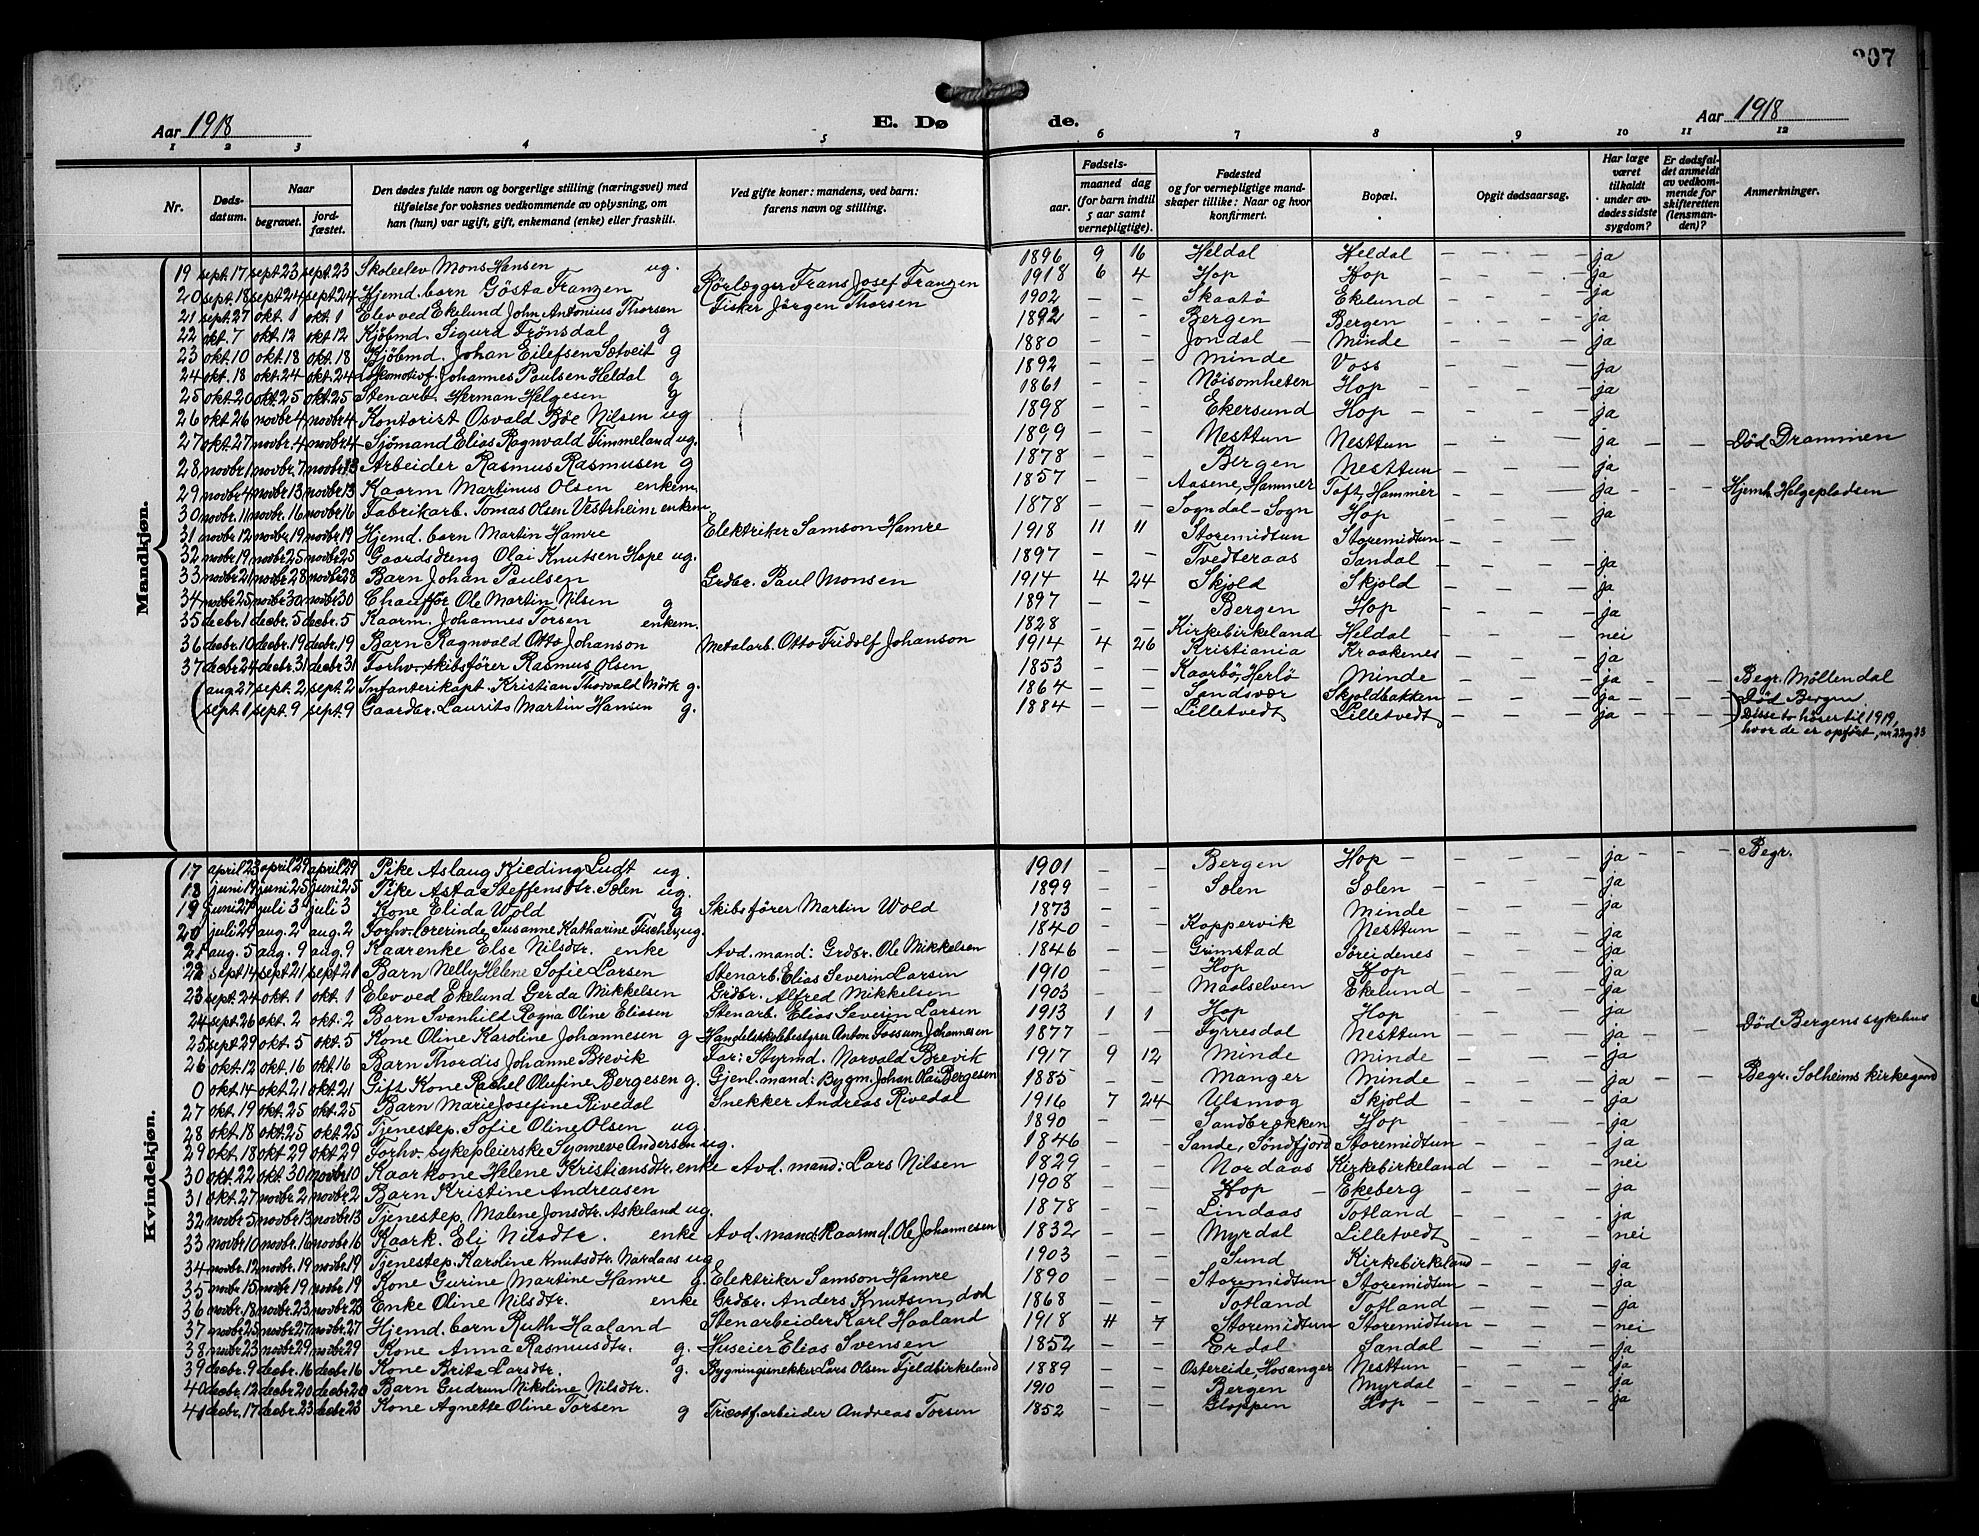 307
Aar 1918
E. Døde.
Aar 1918
1 2 3 4 5 6 7 8 9 10 11 12
Nr.
Døds-datum.
Naar begravet. jord-fæstet.
Den dødes fulde navn og borgerlige stilling (næringsvei) med tilføielse for voksnes vedkommende av oplysning, om han (hun) var ugift, gift, enkemand (enke) eller fraskilt.
Ved gifte koner: mandens, ved barn: farens navn og stilling.
Fødsels- aar. maaned dag (for barn indtil 5 aar samt vernepligtige).
Fødested og for vernepligtige mandskaper tillike: Naar og hvor konfirmert.
Bopæl.
Opgit dødsaarsag.
Har læge været tilkaldt under avdødes sidste sygdom?
Er dødsfaldet anmeldt av vedkommende for skifteretten (lensmanden)?
Anmerkninger.
Mandkjøn.
19 sept. 17 sept 23 sept. 23 Skoleelev Mons Hansen ug. 1896 9 16 Heldal Heldal - - - ja
20 sept. 18 sept 24 sept. 24 Hjemd. barn Gösta Franzen Rörlægger Frans Josef Franzen 1918 6 4 Hop Hop - - - ja
21 sept. 27 okt. 1 okt. 1 Elev ved Ekelund John Antonius Thorsen Fisker Jörgen Thorsen 1902 - - Skaatö Ekelund - - - ja
22 okt. 7 okt. 12 okt. 12 Kjöbmd. Sigurd Frönsdal g 1892 - - Bergen Bergen - - - ja
23 okt. 10 okt. 18 okt. 18 Kjöbmd. Johan Eilefsen Sætveit g 1880 - - Jondal - Minde - - - ja
24 okt. 18 okt. 24 okt. 24 Lokomotivf. Johannes Paulsen Heldal g 1892 - - Minde Voss - - - ja
25 okt. 20 okt. 25 okt. 25 Stenarb. Herman Helgesen g 1861 - - Nöisomheten Hop - - - ja
26 okt. 26 novbr 4 novbr. 4 Kontorist Osvald Böe Nilsen ug 1898 - - Ekersund Hop - - - - ja
27 okt. 27 novbr. 4 novbr. 4 Sjömand Elias Ragnvald Timmeland ug. 1899 - - Nesttun Nesttun - - - ja - - Död Drammen
28 novbr. 1 novbr. 7 novbr. 13 Arbeider Rasmus Rasmusen g 1878 - - Bergen Nesttun - - - ja
29 novbr. 4 novbr. 13 novbr. 13 Kaarm Martinus Olsen enkem. 1857 - - Aasene, Hammer Toft, Hammer - - - ja - - - Hjemh. Helgepladsen
30 novbr. 11 novbr. 16 novbr. 16 Fabrikarb. Tomas Olsen Vestrheim enkem. 1878 - - Sogndal - Sogn Hop - - - ja
31 novbr 12 novbr. 19 novbr. 19 Hjemd. barn Martin Hamre Elektriker Samson Hamre 1918 11 11 Storemidtun Storemidtun - - -
32 novbr. 19 novbr. 25 novbr. 25 Gaardsdreng Olai Knutsen Hope ug. 1897 - - Tvedteraas Sandal - - - ja
33 novbr. 21 novbr. 28 novbr. 28 Barn Johan Paulsen Grdbr. Paul Monsen 1914 4 24 Skjold Skjold - - - ja
34 novbr. 25 novbr. 30 novbr. 30 Chauffför Ole Martin Nilsen g 1897 - - Bergen Hop - - - ja
35 decbr. 1 decbr. 5 decbr. 5 Kaarm. Johannes Torsen enkem. 1828 - - Kirkebirkeland Heldal - - - nei
36 decbr. 10 decbr. 19 decbr. 19 Barn Ragnvald Otto Johanson Metalarb. Otto Fridolf Johanson 1914 4 26 Kristiania Kraakenes - - - ja
37 decbr. 24 decbr. 31 decbr 31 Forhv. skibsförer Rasmus Olsen 1853 - - Kaarbö, Herlö Minde - - - ja - - - Begr. Möllendal
aug. 27 sept. 2 sept. 2 Infanterikapt. Kristian Thorvald Mörk g. 1864 - - Sandsvær Skjoldbakken - - - ja - - - Död Bergen
sept. 1 sept. 9 sept. 9 Gaardbr. Laurits Martin Hansen g. 1884 - - Lilletvedt Lilletvedt - - - ja - - - Disse to hörer til 1919,
hvor de er opfört, nr 22 og 23
Kvindekjøn.
17 april 23 april 29 april 29 Pike Aslaug Kieding Ludt ug. 1901 - - Bergen Hop - - - - ja - - - Begr.
18 juni 19 juni 25 juni 25 Pike Asta Steffensdtr. Sælen ug. 1899 - - Sælen Sælen - - - - ja
19 juni 27 juli 3 juli 3 Kone Elida Wold g Skibsförer Martin Wold 1873 - - Minde - - - ja
20 juli 29 aug. 2 aug. 2 Forhv. lærerinde Susanne Katharine Fischer ug. 1840 - - Koppervik Nesttun - - - ja
21 aug. 5 aug. 9 aug. 9 Kaarenke Else Nilsdtr. enke Avd. mand: Grdbr. Ole Mikkelsen 1846 - - Grimstad Söreidenes - - - ja
22 sept. 14 sept. 21 sept 21 Barn Nelly Helene Sofie Larsen Stenarb. Elias Severin Larsen 1910 - - Hop Hop - - - ja
23 sept. 24 okt. 1 okt. 1 Elev ved Ekelund Gerda Mikkelsen Grdbr. Alfred Mikkelsen 1903 - - Maalselven Ekelund - - - ja
24 sept. 26 okt. 2 okt. 2 Barn Svanhild Ragna Oline Eliasen Stenarb. Elias Severin Larsen 1913 1 1 Hop Hop - - - ja
25 sept. 29 okt. 5 okt. 5 Kone Oline Karoline Johannesen g Handelsskolebestyrer Anton Fossum Johannesen 1877 - - Fyrresdal Nesttun - - - ja - - Död Bergens sykehus
26 okt. 12 okt. 16 okt. 16 Barn Thordis Johanne Brevik Far: Styrmd. Norvald Brevik 1917 9 12 Minde Minde - - - ja
0 okt. 14 okt. 21 okt. 21 Gift Kone Rachel Olufine Bergesen g. Gjenl. mand: Bygm. Johan Olai Bergesen 1885 - - Manger Minde - - - ja - - Begr. Solheims kirkegaard
27 okt. 19 okt. 25 okt. 25 Barn Marie Josefine Rivedal Snekker Andreas Rivedal 1916 7 24 Ulsmog Skjold - - - ja
28 okt. 18 okt. 25 okt. 25 Tjenestep. Sofie Oline Olsen ug. 1890 - - Sandbrækken Hop - - - ja
29 okt. 18 okt 29 okt. 29 Forhv. sykepleierske Synneve Andersen ug. 1846 - - Sande, Söndfjord Storemidtun - - - ja
30 okt. 22 okt. 30 novbr. 10 Kaarkone Helene Kristiansdtr. enke Avd. mand: Lars Nilsen 1829 - - Nordaas Kirkebirkeland - - - nei
31 okt. 27 novbr. 2 novbr. 2 Barn Kristine Andreasen 1908 - - Hop - Ekeberg - - - ja
32 novbr. 5 novbr. 13 novbr. 13 Tjenestep. Malene Jonsdtr. Askeland ug. 1878 - - Lindaas Totland - - - ja
33 novbr. 10 novbr. 16 novbr. 16 Kaark. Eli Nilsdtr. enke Avd. mand: Kaarmd. Ole Johannesen 1832 - - Myrdal Lilletvedt - - - nei
34 novbr. 12 novbr. 19 novbr. 19 Tjenestep. Karoline Knutsdtr. Nordaas ug 1903 - - Sund Kirkebirkeland - - - ja
35 novbr. 15 novbr. 19 novbr. 19 Kone Gurine Martine Hamre g. Elektriker Samson Hamre 1890 - - Storemidtun Storemidtun - - - ja
36 novbr. 18 novbr. 23 novbr. 23 Enke Oline Nilsdtr. enke Grdbr. Anders Knutsen, död 1868 - - Totland Totland - - - ja
37 novbr. 25 novbr. 27 novbr. 27 Hjemd. barn Ruth Haaland Stenarbeider Karl Haaland 1918 11 7 Storemidtun Storemidtun - - - nei
38 novbr. 23 novbr. 29 novbr. 29 Kone Anna Rasmusdtr. g. Huseier Elias Svensen 1852 - - Erdal Sandal - - - ja
39 decbr. 9 decbr. 16 decbr. 16 Kone Brita Larsdtr. g. Bygningsnekker Lars Olsen Fjeldbirkeland 1889 - - Ostereide, Hosanger Nesttun - - - ja
40 decbr. 12 decbr. 20 decbr. 20 Barn Gudrun Nikoline Nilsdtr. 1910 - - Bergen Myrdal - - - ja
41 decbr. 17 decbr. 23 decbr. 23 Kone Agnette Oline Torsen g Tricotf. arbeider Andreas Torsen 1852 - - Gloppen Hop - - - ja